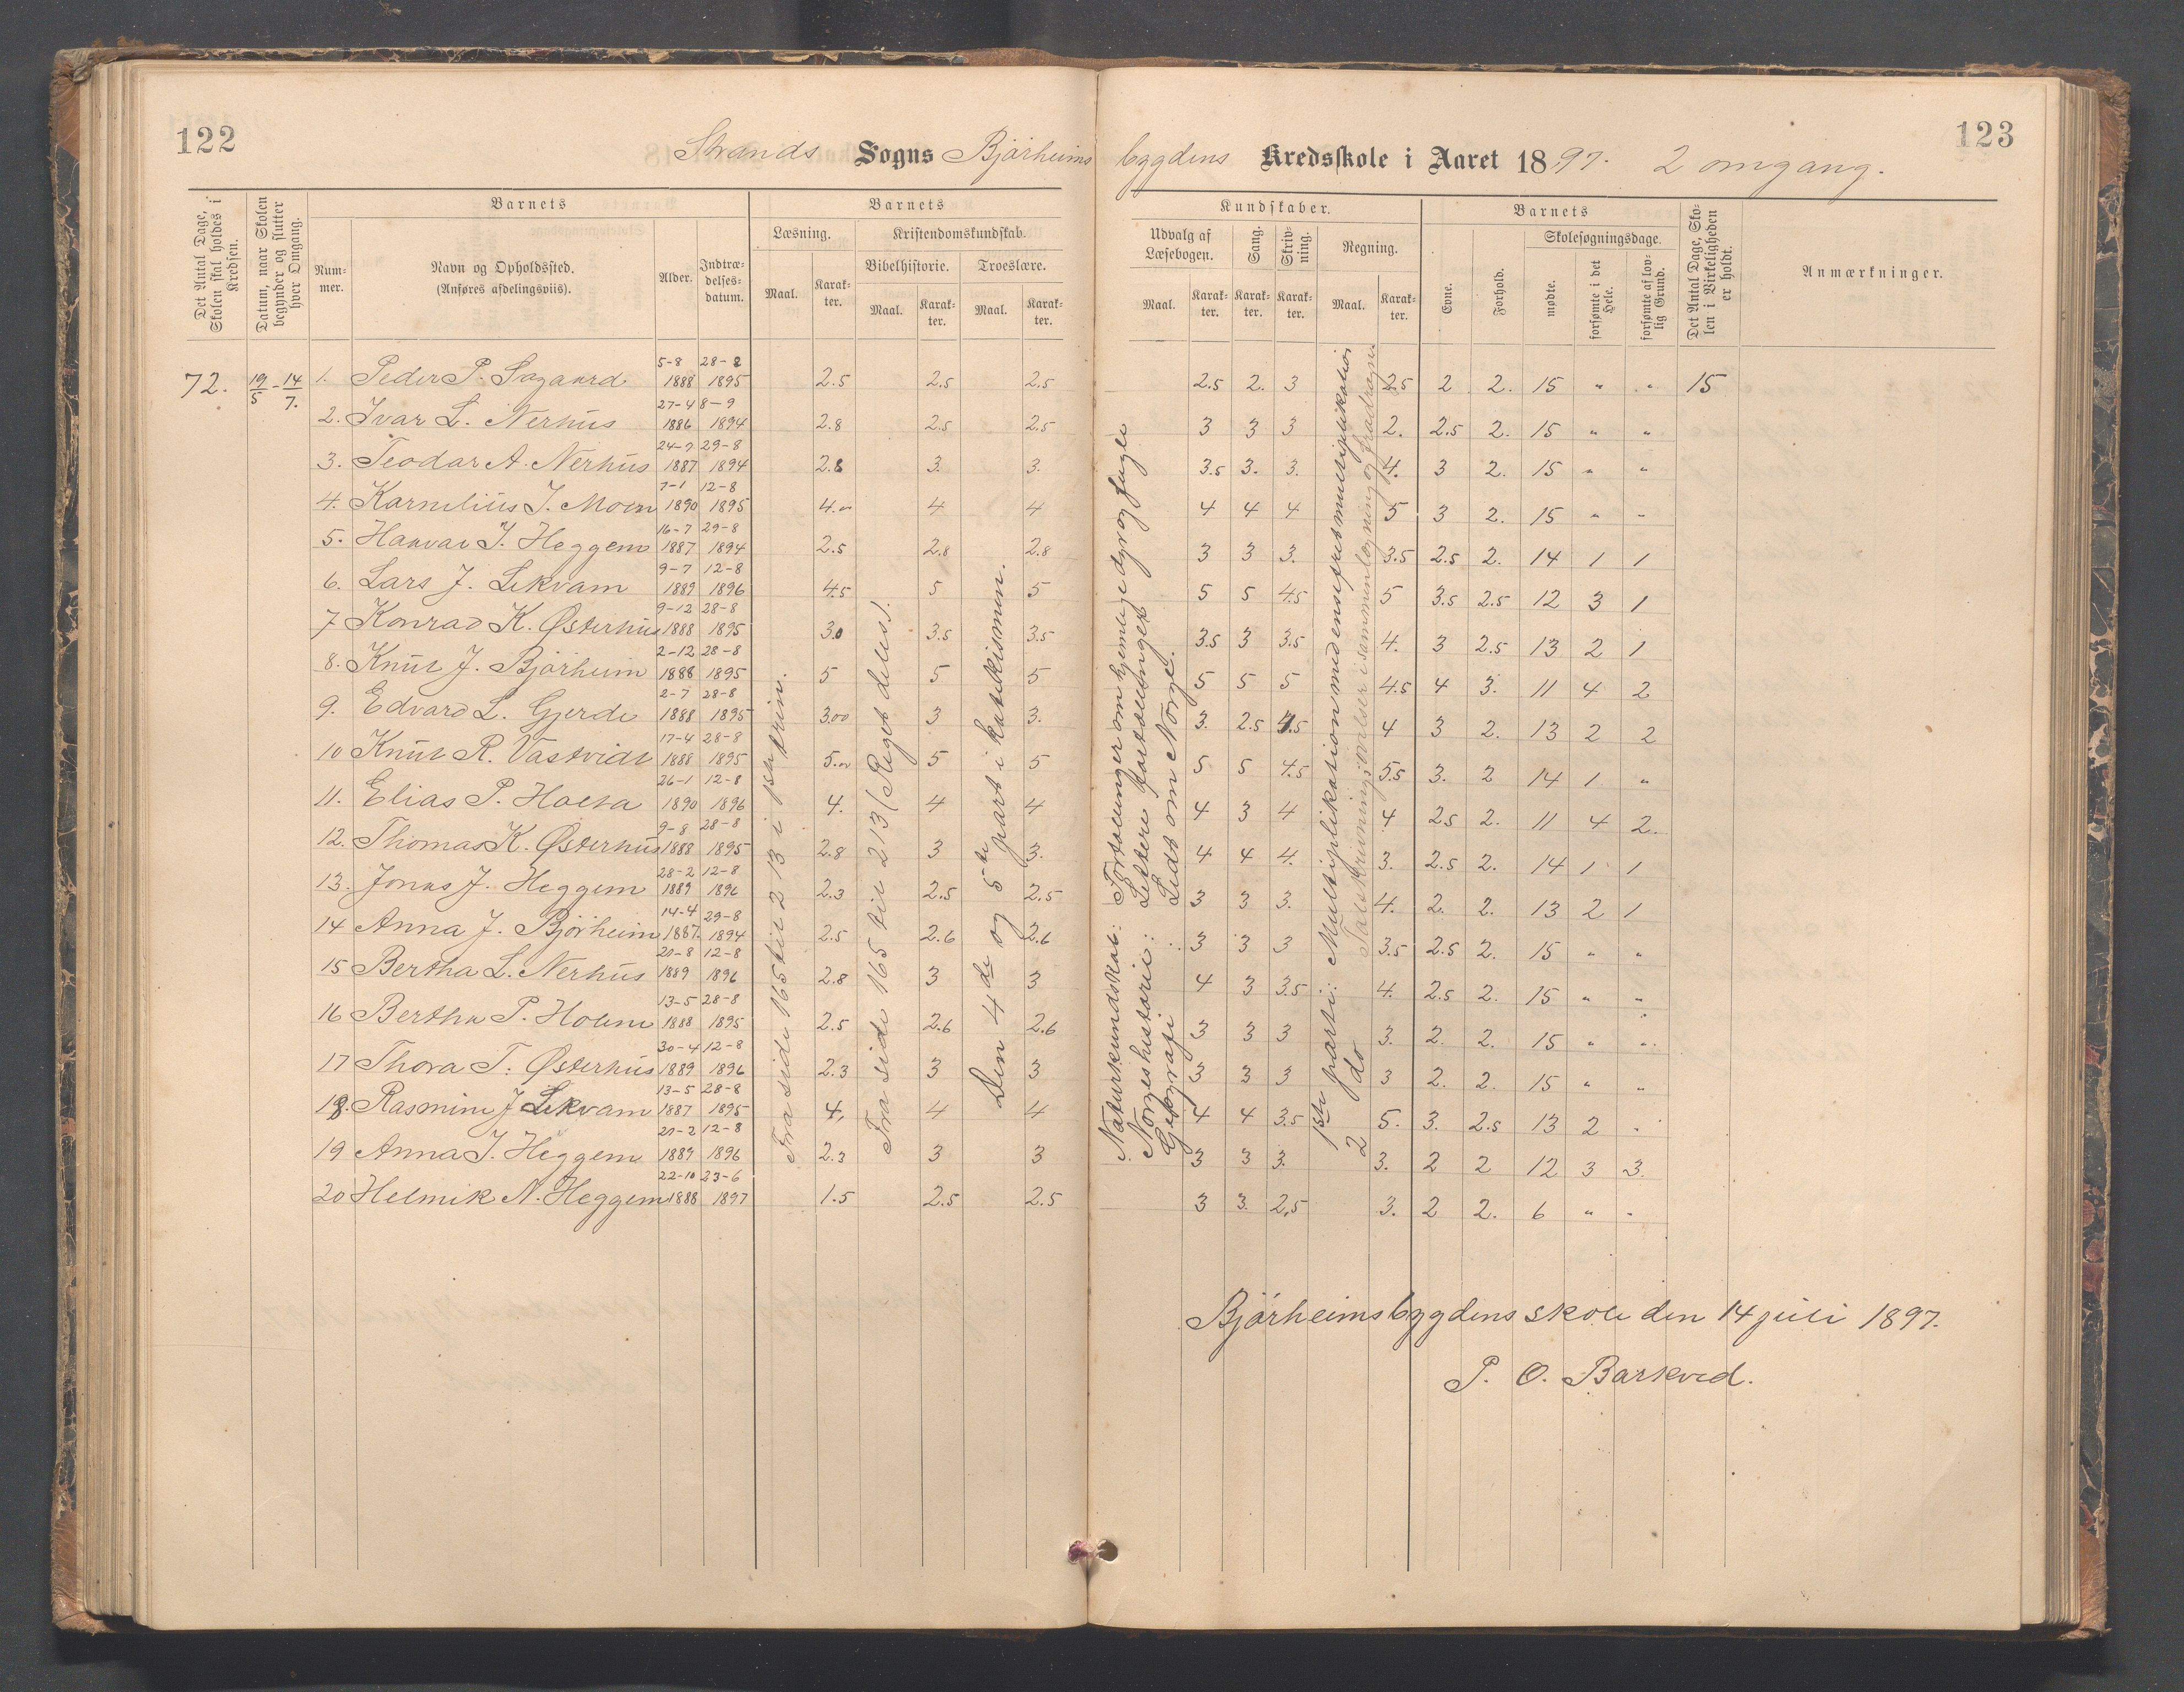 122
Strands Sogns Bjørheims bygdens Kredsskole i Aaret 1897. 2 omgang.
123
Det Antal Dage, Skolen skal holdes i Kredsen.
Datum, naar Skolen begynder og slutter hver Omgang.
Barnets
Nummer.
Navn og Opholdssted.
(Anføres afdelingsviis).
Alder.
Indtrædelsesdatum.
Barnets
Læsning.
Maal.
Karakter.
Kristendomskundskab.
Bibelhistorie.
Maal.
Karakter.
Troeslære.
Maal.
Karakter.
Kundskaber.
Udvalg af Læsebogen.
Maal.
Karakter.
Sang.
Karakter.
Skrivning.
Karakter.
Regning.
Maal.
Karakter.
Barnets
Evne.
Forhold.
Skolesøgningsdage.
mødte.
forsømte i det Hele.
forsømte af lovlig Grund.
Det Antal Dage, Skolen i Virkeligheden er holdt.
Anmærkninger.
72. 19/5 - 14/7. 1. Peder P. Sagaard 5-8 1888 28-8 1895 2.5 2.5 2.5 2.5 2. 3 2.5 2 2. 15 " " 15
2. Ivar L. Nerhus 27-4 1886 8-9 1894 2.8 2.5 2.5 3 3 3 2. 2.5 2. 15 " "
3. Teodar A. Nerhus 24-7 1887 29-8 1894 2.8 3. 3. 3.5 3. 3. 4. 3 2. 15 " "
4. Karnelius J. Moen 7-1 1890 12-8 1895 4.00 4 4 4 4 4 5 3 2. 15 " "
5. Haavar J. Heggem 16-7 1887 29-8 1894 2.5 2.8 2.8 3 3 3. 3.5 2.5 2. 14 1 1
6. Lars J. Lekvam 9-7 1889 12-8 1896 4.5 5 5 5 5 4.5 5 3.5 2.5 12 3 1
7 Konrad K. Østerhus 9-12 1888 28-8 1895 3.0 3.5 3.5 3.5 3 3.5 4. 3 2.5 13 2 1
8. Knut J. Bjørheim 2-12 1888 28-8 1895 5 5 5 5 5 5 4.5 4 3. 11 4 2
9. Edvard L. Gjerde 2-7 1888 28-8 1895 3.00 3 3. 3. 2.5 4.5 4 3 2. 13 2 2
10 Knut R. Vastvidt 17-4 1888 28-8 1895 5.00 5 5 5 5 4.5 5.5 3. 2 14 1 "
11. Elias P. Holta 26-1 1890 12-8 1896 4. 4 4 4 3 4 4 2.5 2. 11 4 2.
12. Thomas K. Østerhus 9-8 1888 28-8 1895 2.8 3 3. 4 4 4. 3. 2.5 2. 14 1 1
13. Jonas J. Heggem 28-2 1889 12-8 1896 2.3 2.5 2.5 3 3 3. 4. 2. 2. 13 2 1
14 Anna J. Bjørheim 14-4 1887. 29-8 1894 2.5 2.6 2.6 3 3 3 3.5 2.5 2. 15 " "
15 Bertha L. Nerhus 20-8 1889 12-8 1896 2.8 3 3 4 3 3.5 4. 2.5 2. 15 " "
16 Bertha P. Holem 13-5 1888 28-8 1895 2.5 2.6 2.6 3 3 3 3. 2. 2. 15 " "
17 Thora T. Østerhus 30-4 1889 12-8 1896 2.3 3 3 3 3 3 3 2. 2. 15 " "
18. Rasmine J Lekvam 13-5 1887 28-8 1895 4. 4 4 4 4 3.5 5. 3. 2.5 13 2 "
19 Anna J. Heggem 20-2 1889 12-8 1896 2.3 3 3 3 3 3. 3. 2 2 12 3 3.
20 Helmik N. Heggem 22-10 1888 23-6 1897 1.5 2.5 2.5 3 3. 2.5 3. 2 2. 6 " "
Fra side 165 til 213 i 1ste trin.
Fra side 165 til 213 (Riget deles).
Den 4de og 5te part i katekismen.
Naturkundskab: Fortellinger om hjemlige dyr og fugle
Norges historie: Lettere fortellinger
Geografi: Lidt om Norge.
1ste parti: Multiplikation med ensifret multiplikator
2 do Talskrivning; øvelser i sammenlægning og fradragn.
Bjørheimsbygdens skole den 14 juli 1897.
P. O. Barkved.